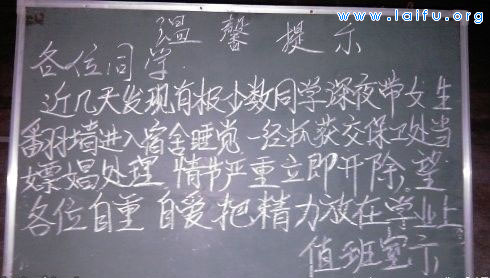 www.laifu.org
温馨提示
各位同学
近几天发现有极少数同学深夜带女生
翻墙进入宿舍睡觉 一经抓获交保卫处当
嫖娼处理 情节严重立即开除,望
各位自重 自爱把精力放在学业上
值班室示